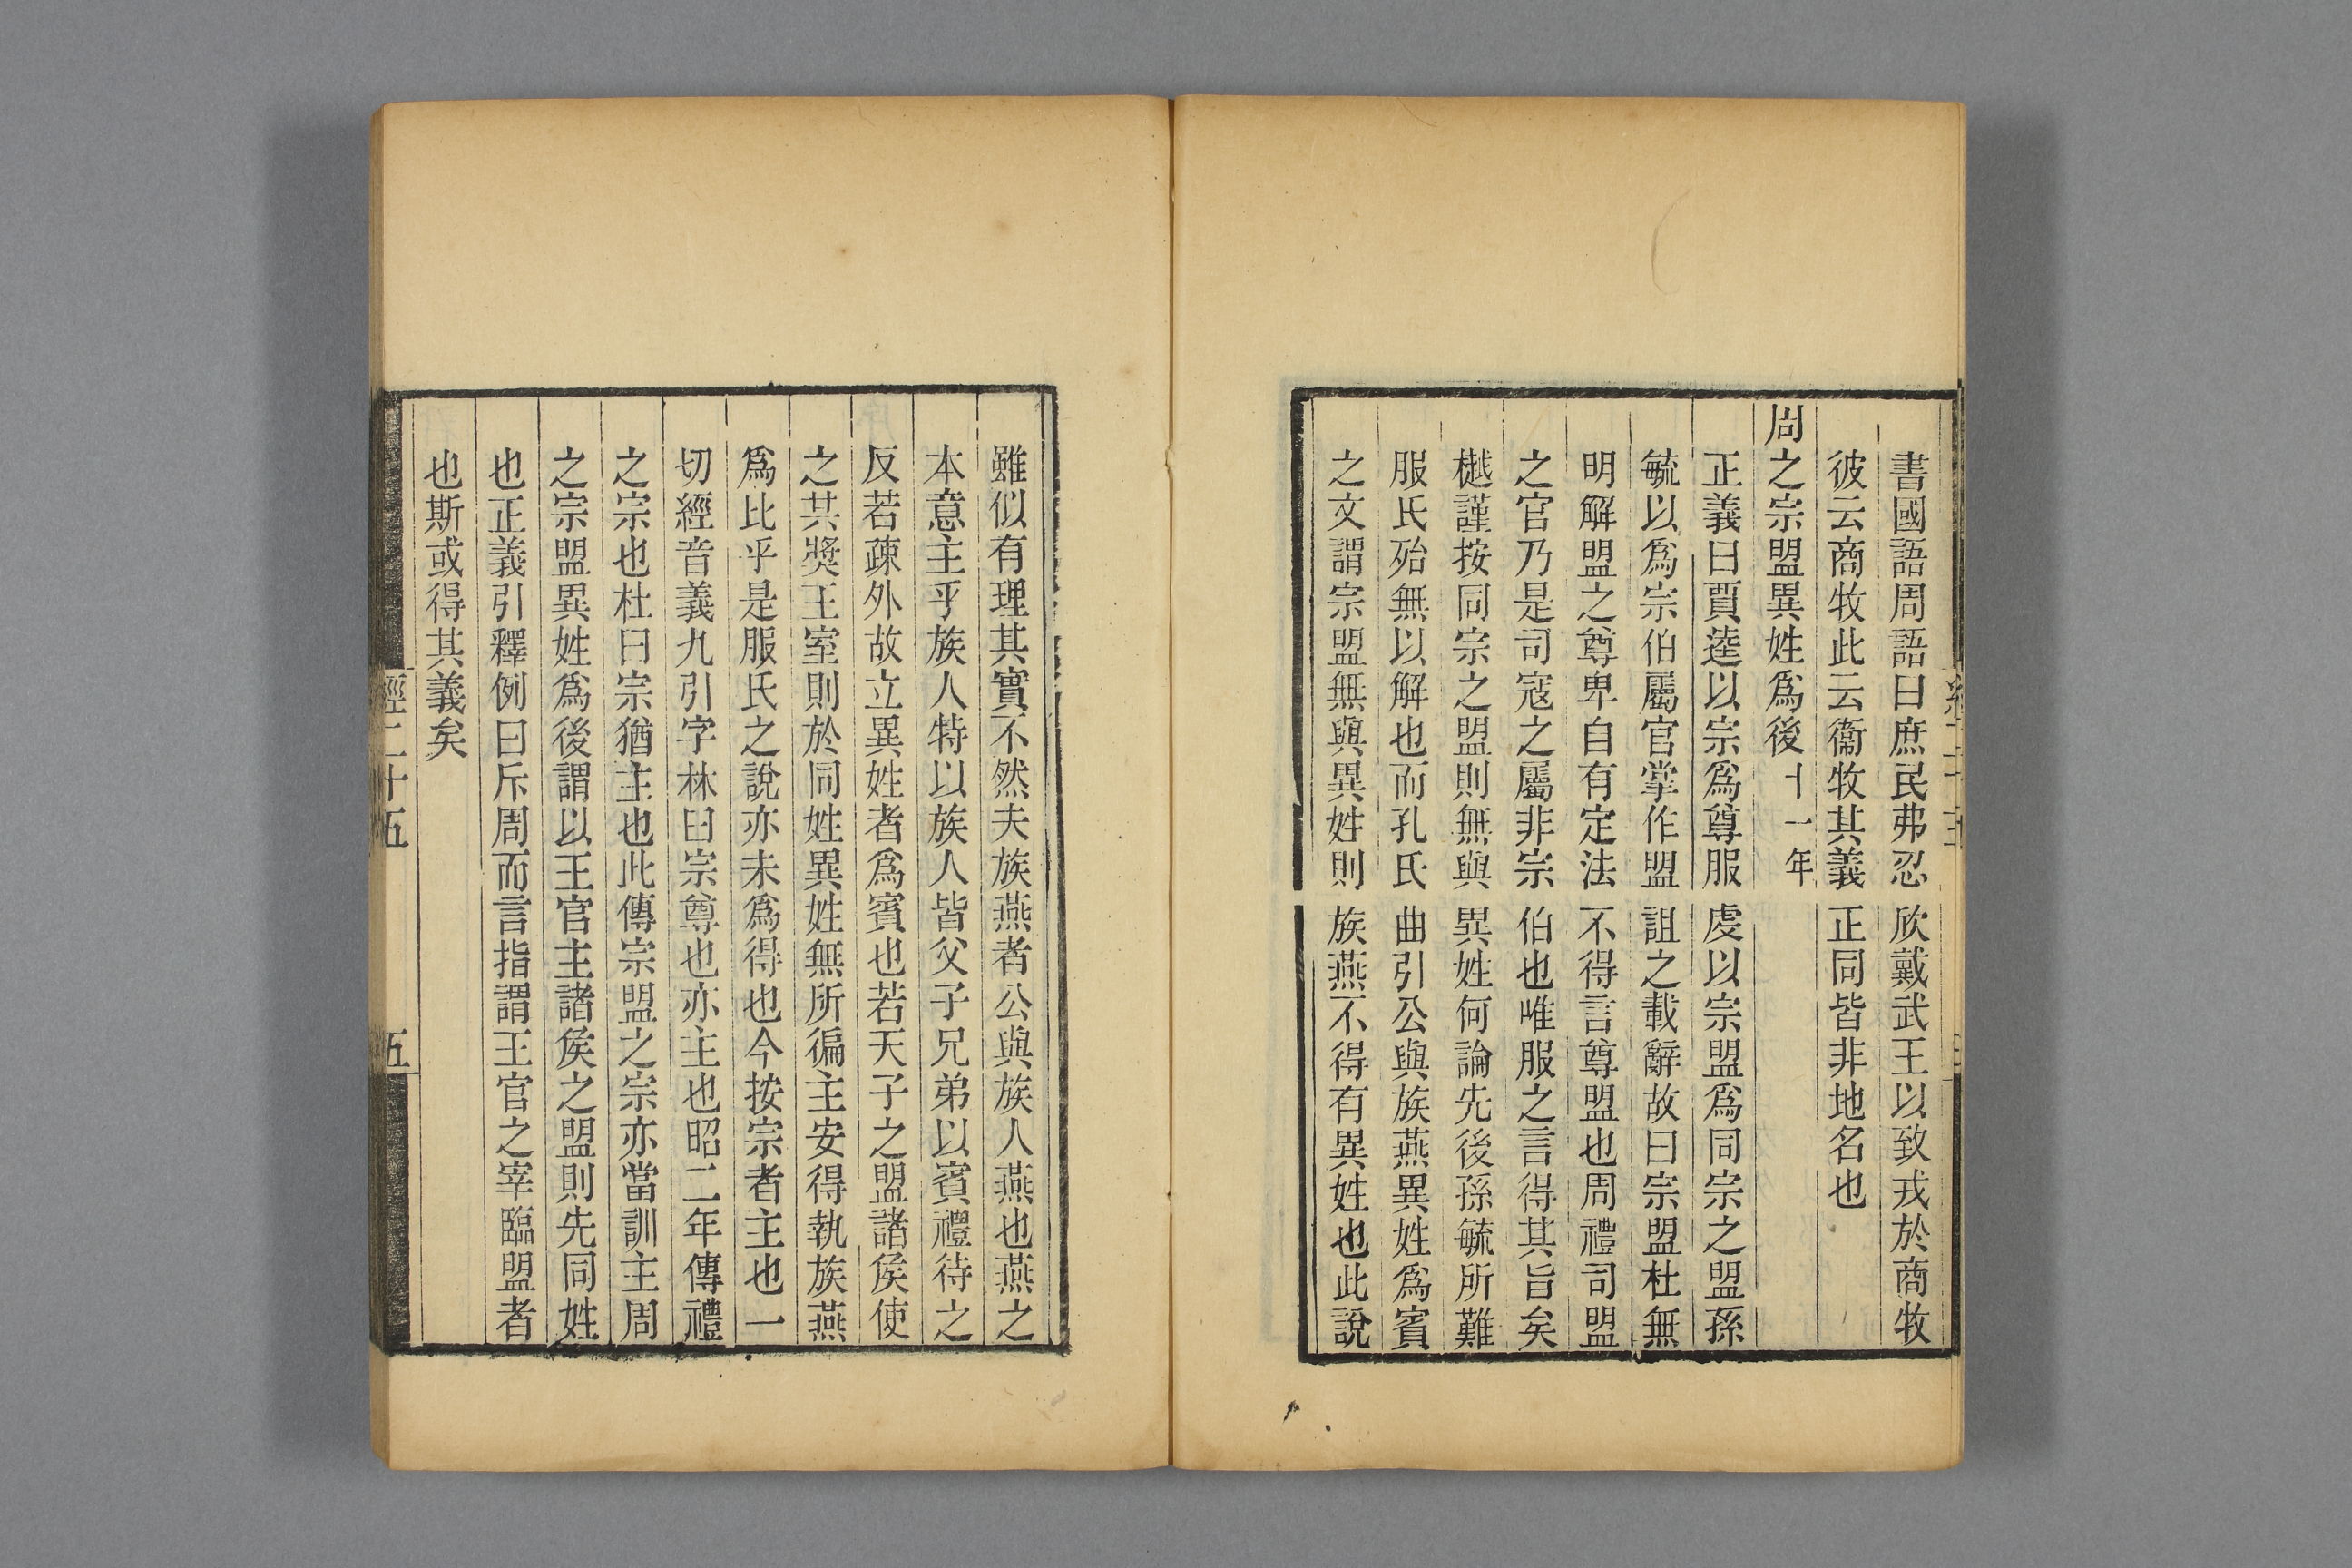 書國語周語曰庶民弗忍欣戴武王以致戎於商牧
彼云商牧此云衞牧其義正同皆非地名也
周之宗盟異姓爲後十一年
正義曰賈逵以宗爲尊服虔以宗盟爲同宗之盟孫
毓以爲宗伯屬官掌作盟詛之載辭故曰宗盟杜無
明解盟之尊卑自有定法不得言尊盟也周禮司盟
之官乃是司寇之屬非宗伯也唯服之言得其旨矣
樾謹按同宗之盟則無與異姓何論先後孫毓所難
服氏殆無以解也而孔氏曲引公與族燕異姓爲賓
之文謂宗盟無與異姓則族燕不得有異姓也此說
雖似有理其實不然夫族燕者公與族人燕也燕之
本意主乎族人特以族人皆父子兄弟以賓禮待之
反若疎外故立異姓者爲賓也若天子之盟諸侯使
之共獎王室則於同姓異姓無所徧主安得執族燕
爲比乎是服氏之說亦未爲得也今按宗者主也一
切經音義九引字林曰宗尊也亦主也昭二年傳禮
之宗也杜曰宗猶主也此傳宗盟之宗亦當訓主周
之宗盟異姓爲後謂以王官主諸侯之盟則先同姓
也正義引釋例曰斥周而言指謂王官之宰臨盟者
也斯或得其義矣
經二十五
五